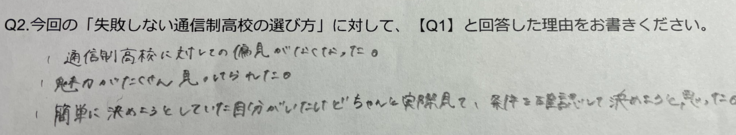 Q2.今回の「失敗しない通信制高校の選び方」に対して、【Q1】と回答した理由をお書きください。
、通信制高校に対しての偏見がなくなった。
、魅力がたくさん見つけられた。
、簡単に決めようとしていた自分がいたけどちゃんと実際見て、条件を確認して決めようと思った。